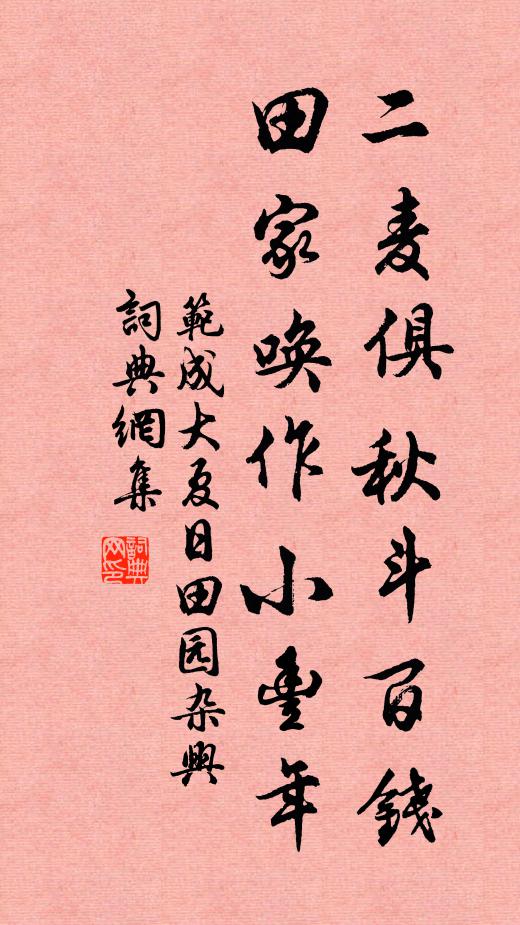 二麦俱秋斗百錢
田家喚作小豊年
範成大夏日田园杂興
詞典網集
詞典网印